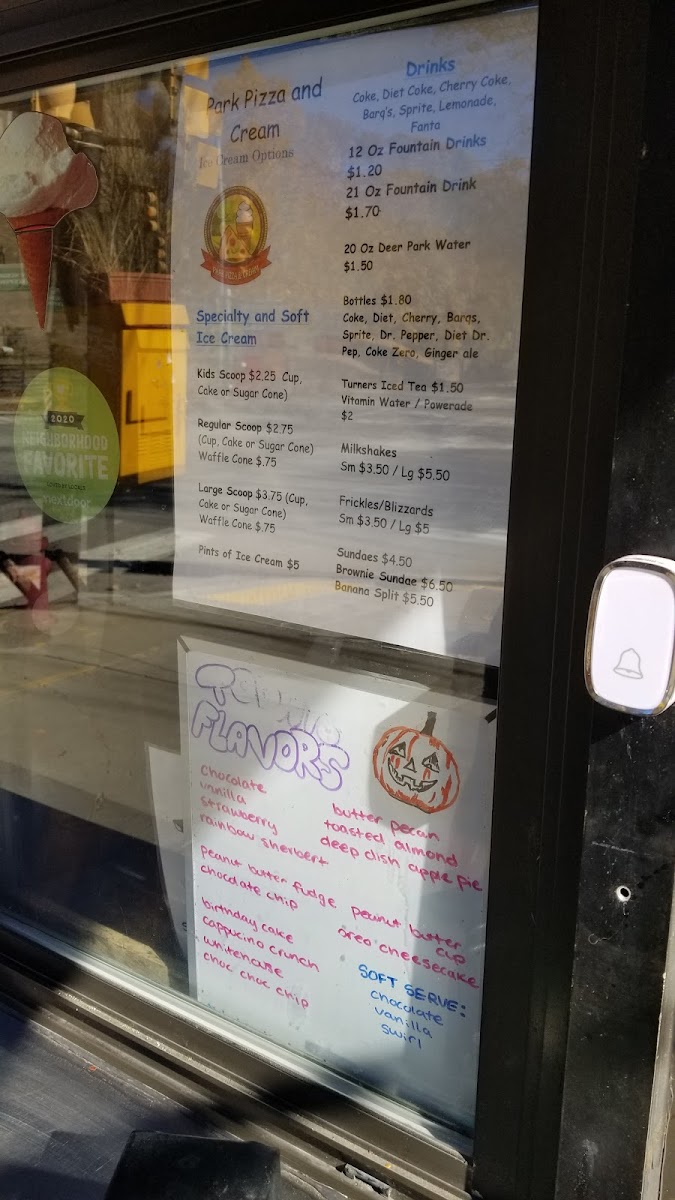 Park Pizza and
Cream
Ice Cream Options
Specialty and Soft
Ice Cream
Kids Scoop $2.25 Cup,
Cake or Sugar Cone)
Regular Scoop $2.75
(Cup, Cake or Sugar Cone)
Waffle Cone $.75
Large Scoop $3.75 (Cup,
Cake or Sugar Cone)
Waffle Cone $.75
Pints of Ice Cream $5
Drinks
Coke, Diet Coke, Cherry Coke,
Barq's, Sprite, Lemonade,
Fanta
12 Oz Fountain Drinks
$1.20
21 Oz Fountain Drink
$1.70
20 Oz Deer Park Water
$1.50
Bottles $1.80
Coke, Diet, Cherry, Barqs,
Sprite, Dr. Pepper, Diet Dr.
Pep, Coke Zero, Ginger ale
Turners Iced Tea $1.50
Vitamin Water / Powerade
$2
Milkshakes
Sm $3.50 / Lg $5.50
Frickles/Blizzards
Sm $3.50 / Lg $5
Sundaes $4.50
Brownie Sundae $6.50
Banana Split $5.50
2020
NEIGHBORHOOD
FAVORITE
nextdoor
FLAVORS
chocolate
vanilla
strawberry
rainbow sherbert
peanut butter fudge
chocolate chip
birthday cake
cappucino crunch
whitehouse
choc choc chip
butter pecan
toasted almond
deep dish apple pie
peanut butter
cup
oreo cheesecake
SOFT SERVE:
chocolate
vanilla
swirl